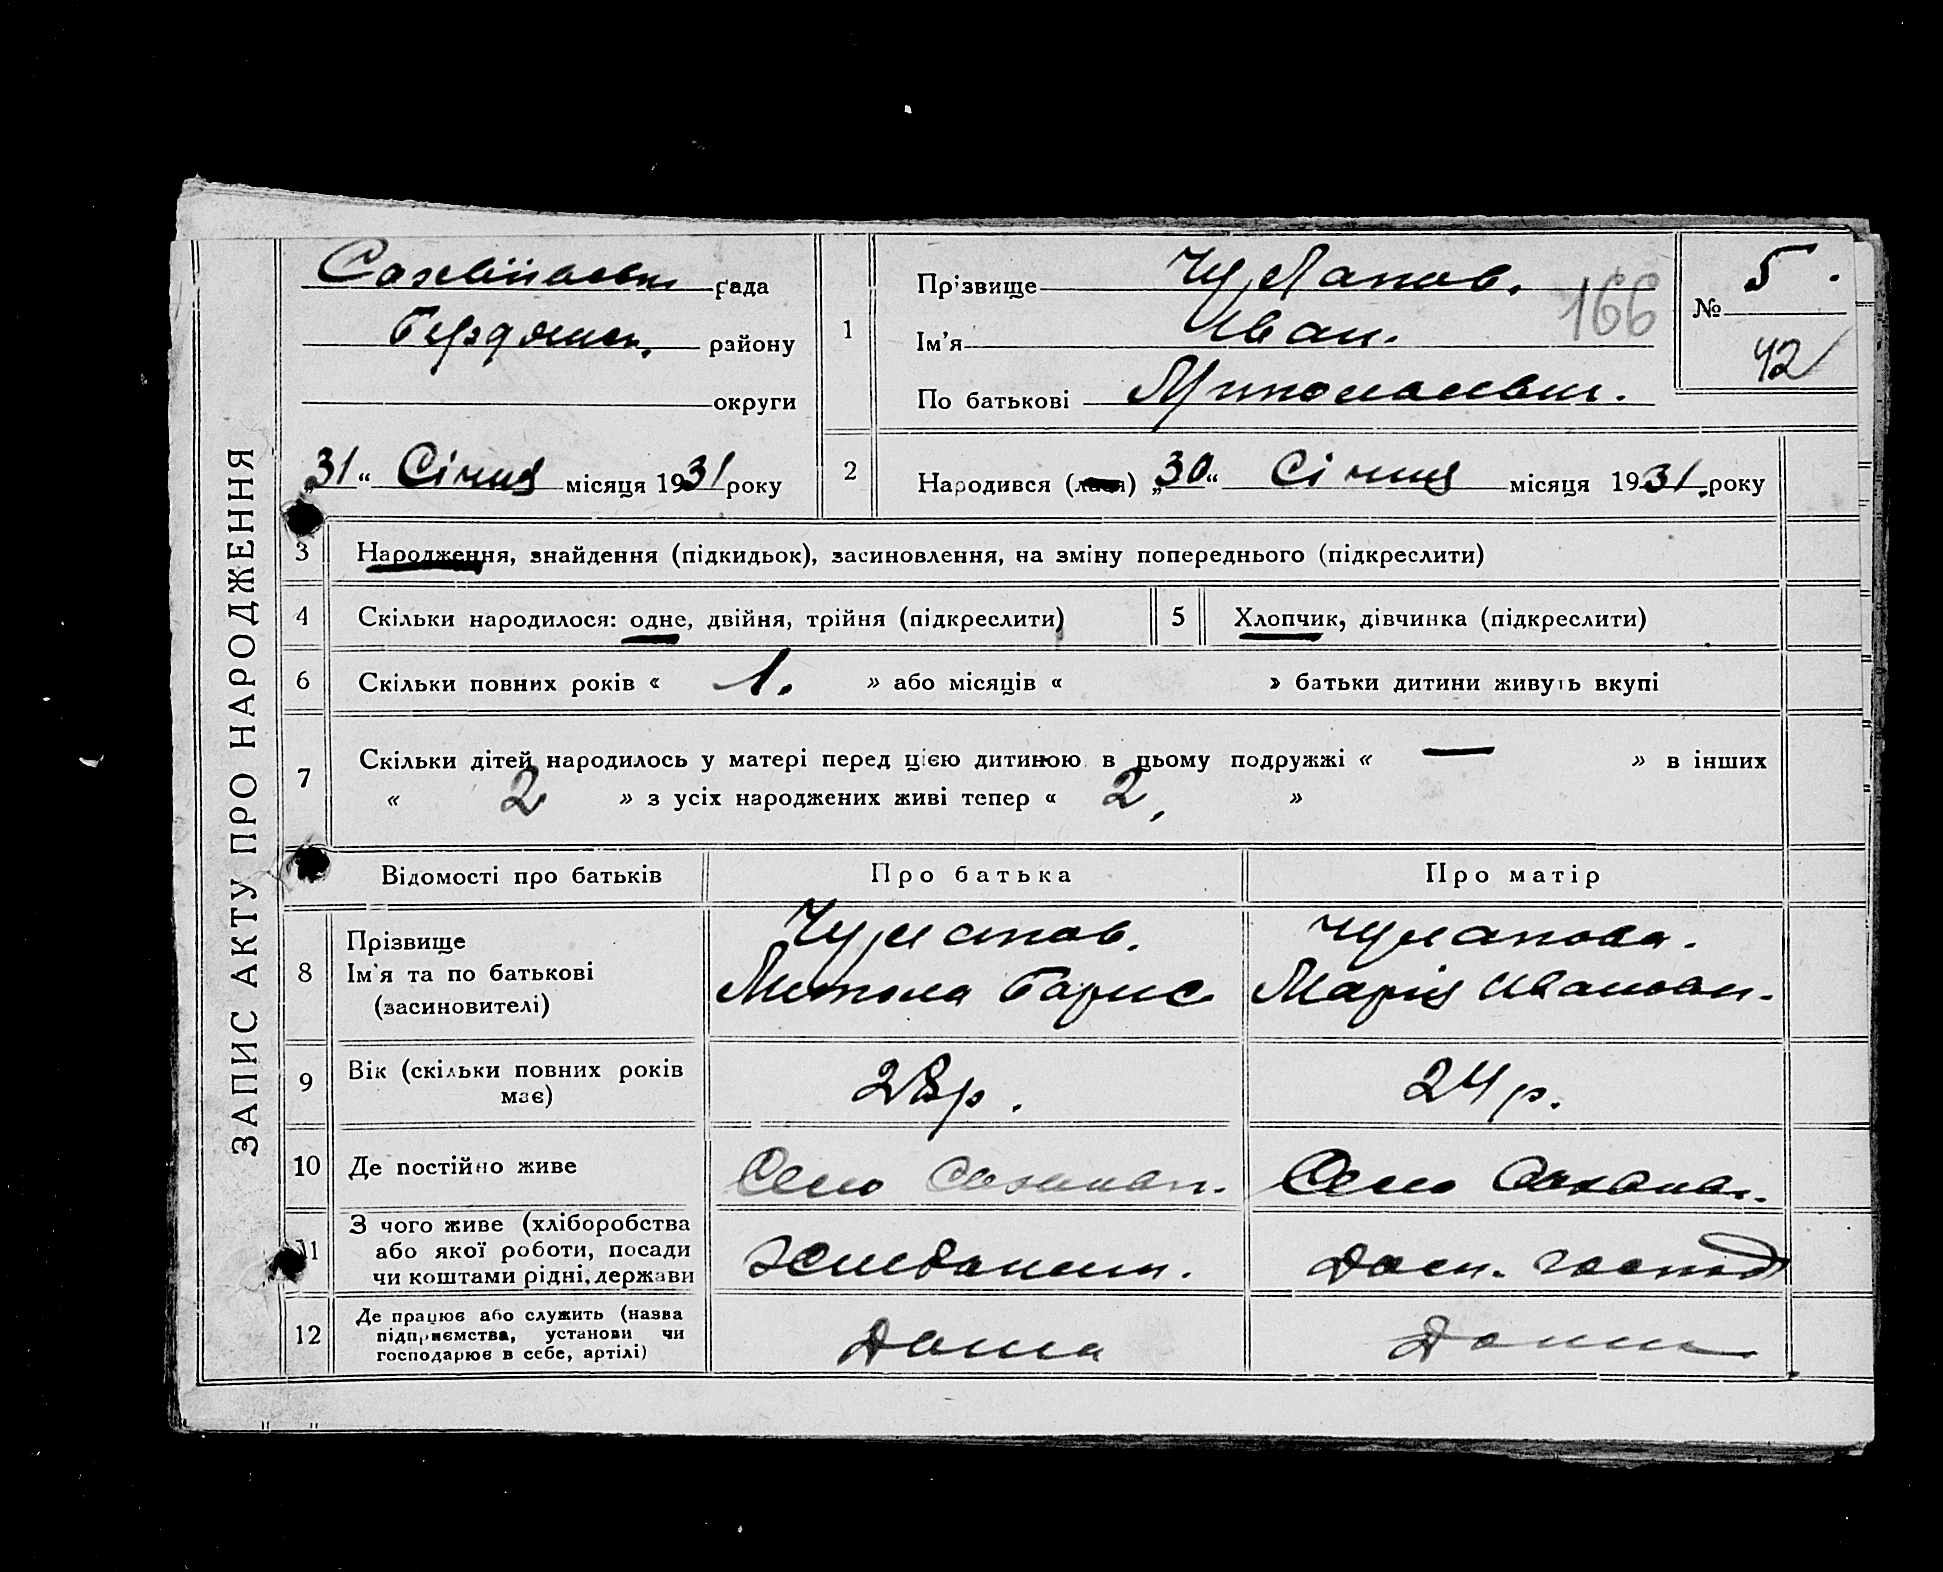 ЗАПИС АКТУ ПРО НАРОДЖЕННЯ
рада
Бердянськ. району
округи
„31“ Січня місяця 1931 року
1
Прізвище
Ім'я Иван.
По батькові Миколаевич.
166
№ 5.
42
2
Народився (лася) „30“ Січня місяця 1931. року
3 Народження, знайдення (підкидьок), засиновлення, на зміну попереднього (підкреслити)
4 Скільки народилося: одне, двійня, трійня (підкреслити)
5 Хлопчик, дівчинка (підкреслити)
6 Скільки повних років « 1. » або місяців « » батьки дитини живуть вкупі
7 Скільки дітей народилось у матері перед цією дитиною в цьому подружжі « — » в інших
« 2 » з усіх народжених живі тепер « 2, »
Відомості про батьків
Про батька
Про матір
8 Прізвище
Ім'я та по батькові
(засиновителі)
Чумаков.
Микола Борис
Чумакова.
Марія Иванован.
9 Вік (скільки повних років
має)
28 р.
24 р.
10 Де постійно живе
Село
Село
11 З чого живе (хліборобства
або якої роботи, посади
чи коштами рідні, держави
Дом. господ
12 Де працює або служить (назва
підприємства, установи чи
господарює в себе, артілі)
Дома
Дома